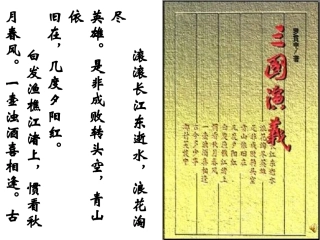 滚滚长江东逝水，浪花淘
尽
英雄。是非成败转头空，青山
依
旧在，几度夕阳红。
白发渔樵江渚上，惯看秋
月春风。一壶浊酒喜相逢。古
罗贯中/著
三国演義
长江东逝水
浪花淘尽英雄
是非成败转头空
青山依旧在
几度夕阳红
白发渔樵江渚上
惯看秋月春风
一壶浊酒喜相逢
古今多少事
都付笑谈中